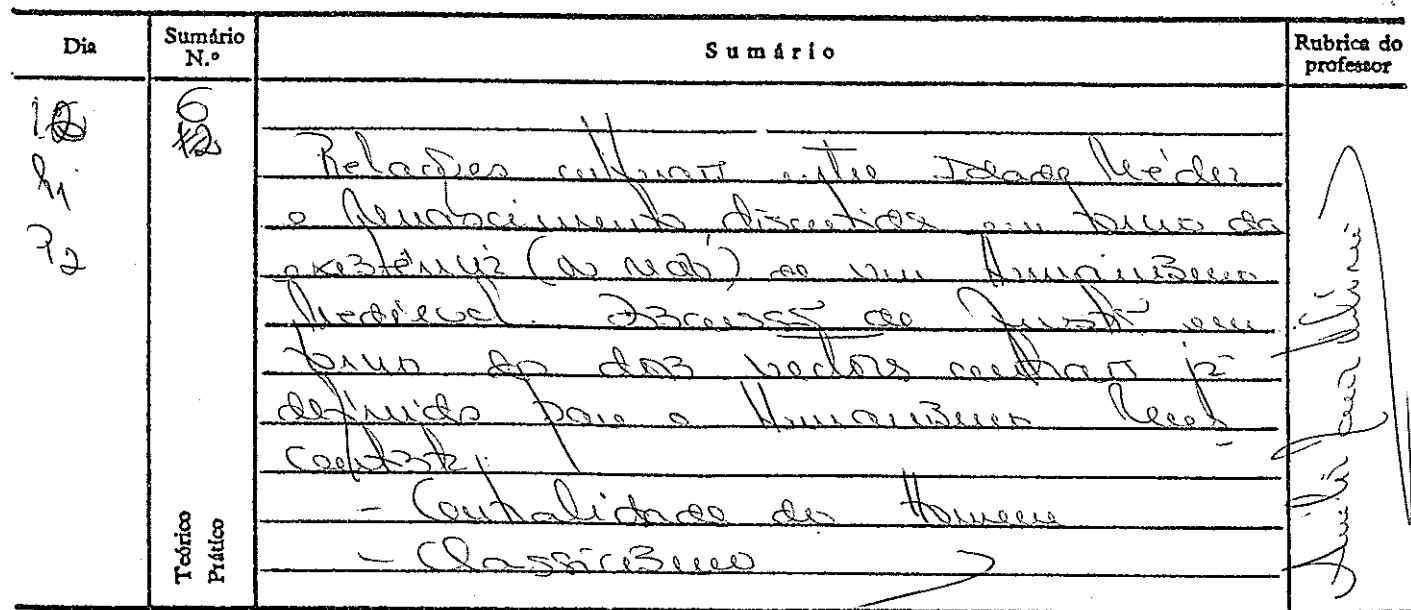 Dia
Sumário N.º
Sumário
Rubrica do professor
6
Relações culturais entre Idade Média
e Renascimento discutidas em torno da
existência (ou não) de um Humanismo
Medieval. Discussão da questão em
torno dos dois vectores centrais já
definidos para o Humanismo
- Centralidade do Homem
- Classicismo
Teórico
Prático